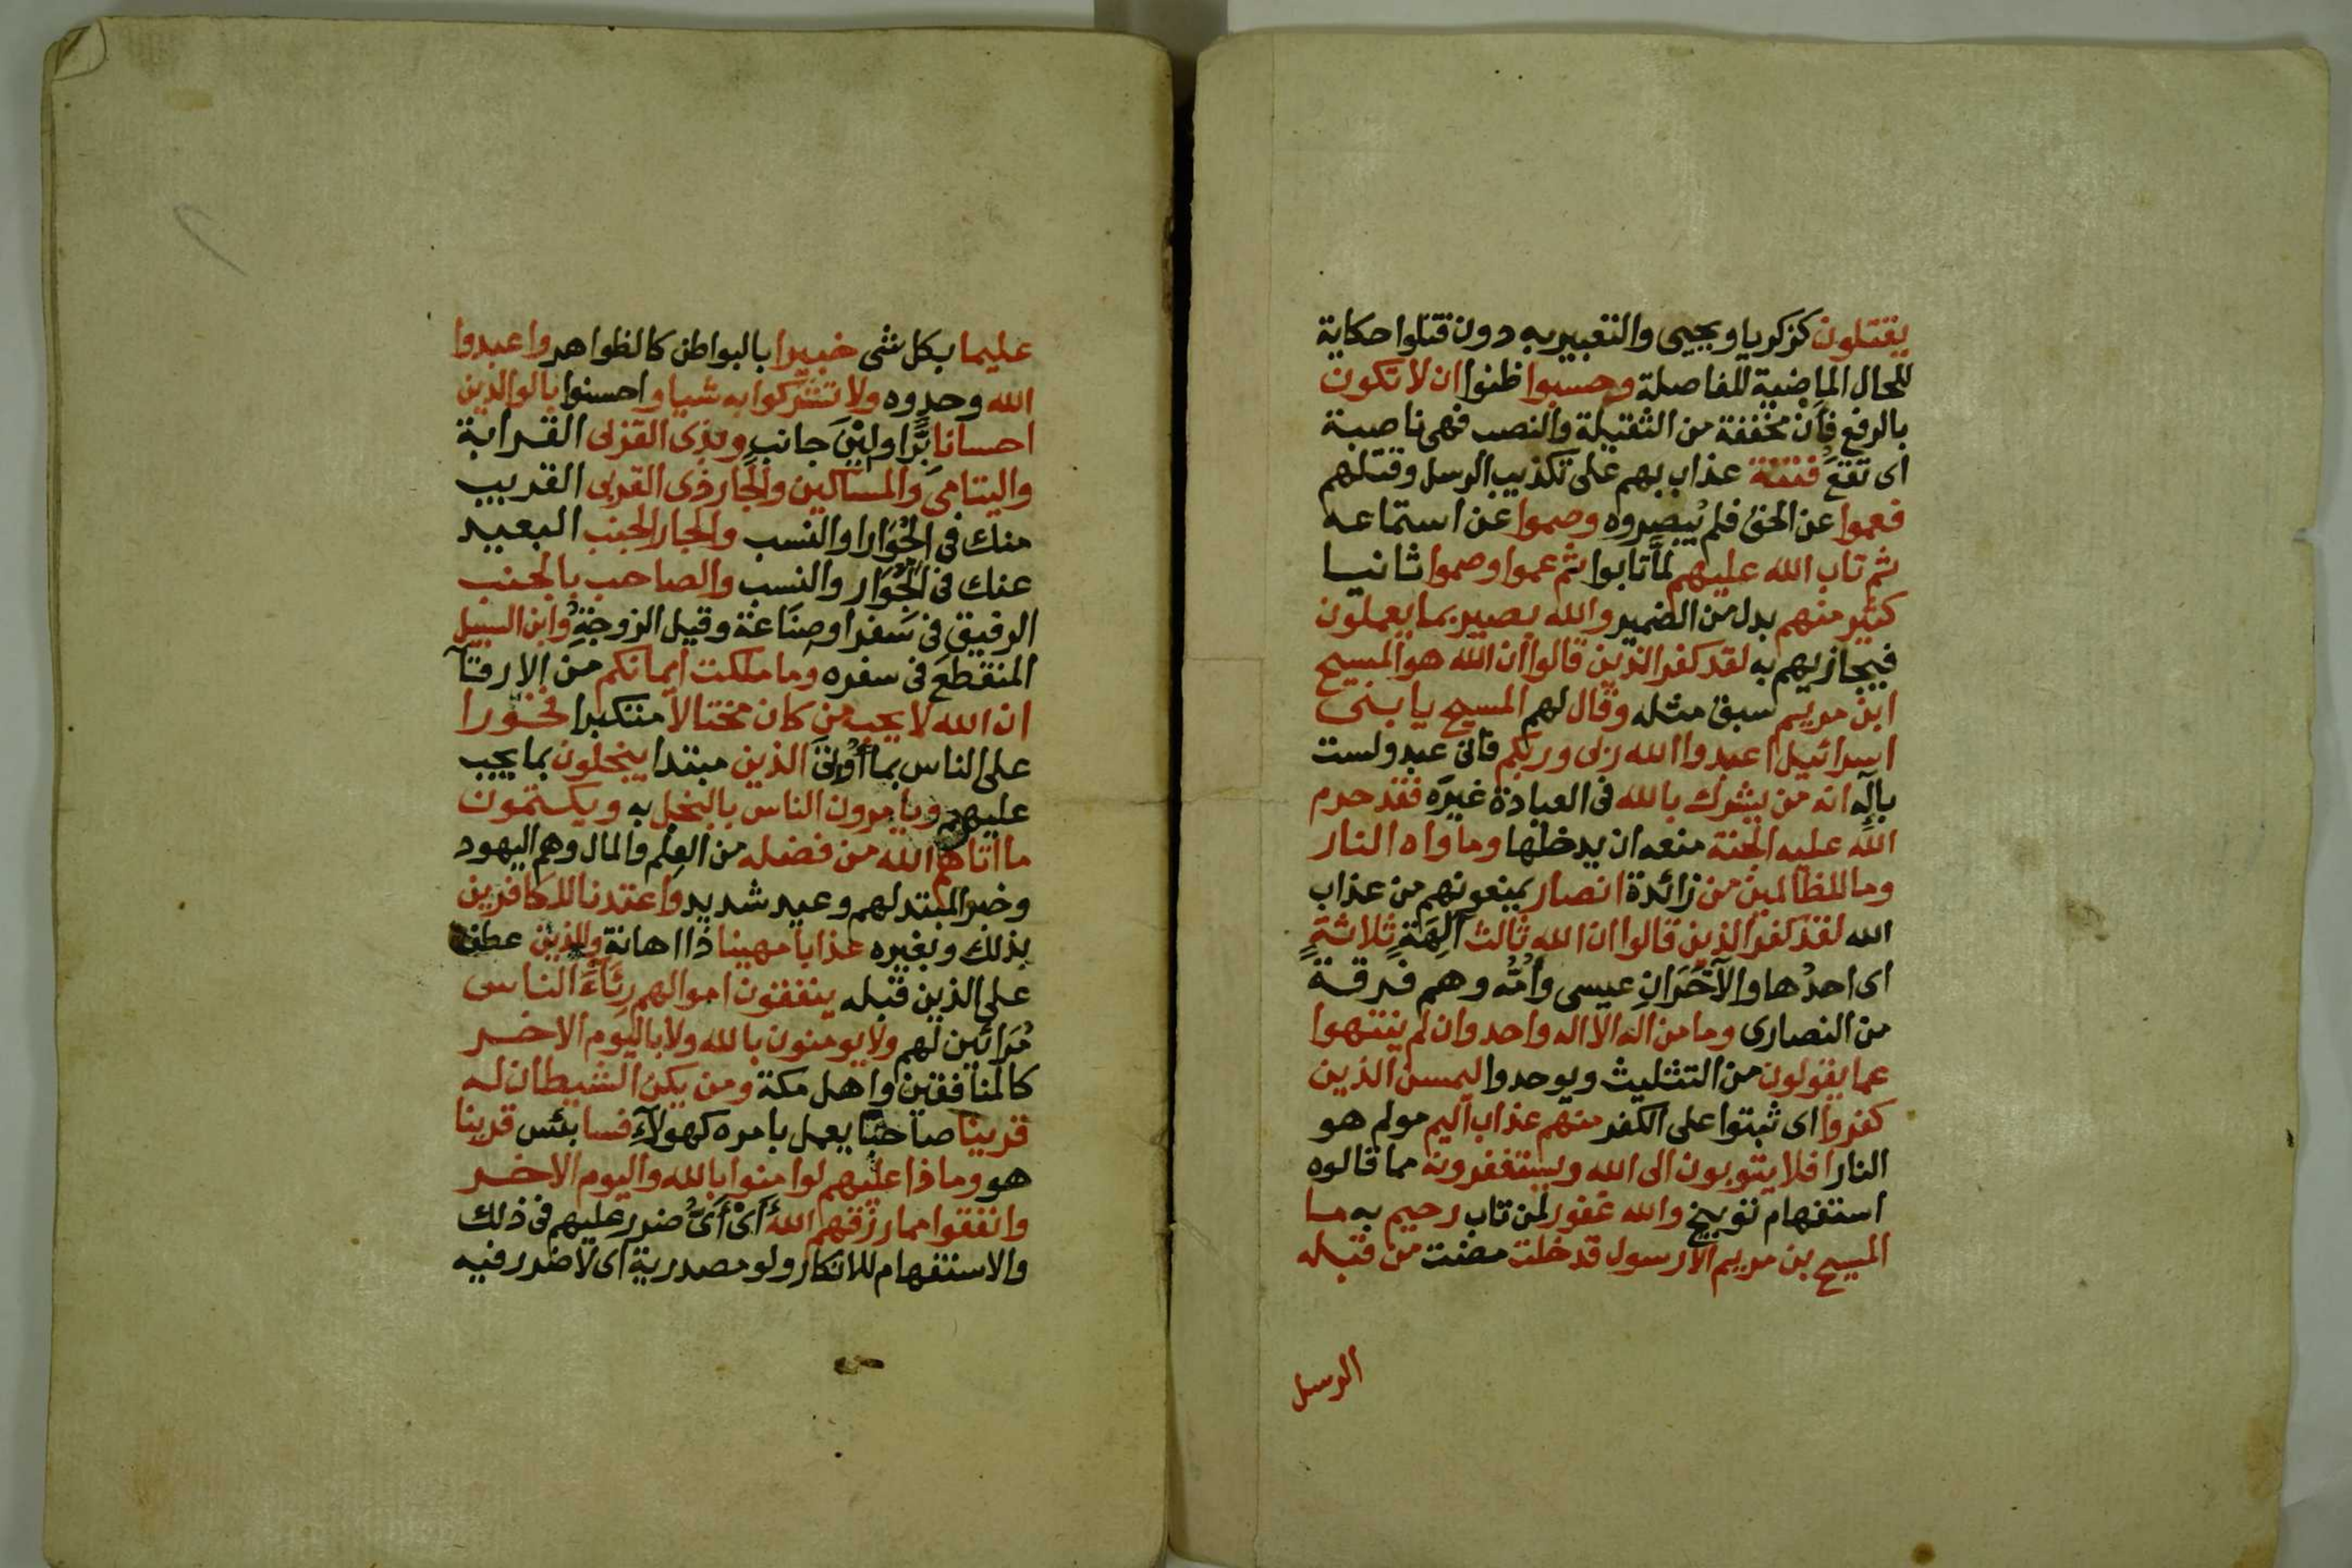 يقتلون كزكريا ويحيى والتعبير به دون قتلوا حكاية
للحال الماضية للفاصلة وحسبوا ظنوا ان لا تكون
بالرفع فأن مخففة من الثقيلة والنصب فهى ناصبة
اى تقع فتنة عذاب بهم على تكذيب الرسل وقتلهم
فعموا عن الحق فلم يبصروه وصموا عن استماعه
ثم تاب الله عليهم لما تابوا ثم عموا وصموا ثانيا
كثير منهم بدل من الضمير والله بصير بما يعملون
فيجازيهم به لقد كفر الذين قالوا ان الله هو المسيح
ابن مريم سبق مثله وقال لهم المسيح يا بنى
اسرائيل اعبدوا الله ربى وربكم فانى عبد ولست
بإله انه من يشرك بالله فى العبادة غيره فقد حرم
الله عليه الجنة منعه ان يدخلها وماواه النار
وما للظالمين من زائدة انصار يمنعونهم من عذاب
الله لقد كفر الذين قالوا ان الله ثالث آلهة ثلاثة
اى احدها والآخران عيسى وامه وهم فرقة
من النصارى وما من اله الا اله واحد وان لم ينتهوا
عما يقولون من التثليث ويوحدوا ليمسن الذين
كفروا اى ثبتوا على الكفر منهم عذاب اليم مولم هو
النار افلا يتوبون الى الله ويستغفرونه مما قالوه
استفهام توبيخ والله غفور لمن تاب رحيم به ما
المسيح بن مريم الا رسول قد خلت مضت من قبله
الرسل
عليما بكل شى خبيرا بالبواطن كالظواهر واعبدوا
الله وحدوه ولا تشركوا به شيا واحسنوا بالوالدين
احسانا برا ولين جانب وبذى القربى القرابة
واليتامى والمساكين والجار ذى القربى القريب
منك فى الجوار او النسب والجار الجنب البعيد
عنك فى الجوار والنسب والصاحب بالجنب
الرفيق فى سفر او صناعة وقيل الزوجة وابن السبيل
المنقطع فى سفره وما ملكت ايمانكم من الارقآ
ان الله لا يحب من كان مختالا متكبرا فخورا
على الناس بما أوتى الذين مبتدا يبخلون بما يجب
عليهم ويامرون الناس بالبخل به ويكتمون
ما اتاهم الله من فضله من العلم والمال وهم اليهود
وخبر المبتد لهم وعيد شديد واعتدنا للكافرين
بذلك وبغيره عذابا مهينا ذا اهانة والذين عطف
على الذين قبله ينفقون اموالهم رئاء الناس
مرائين لهم ولا يومنون بالله ولا باليوم الاخر
كالمنافقين واهل مكة ومن يكن الشيطان له
قرينا صاحبا يعمل بامره كهولآء فسا بئس قرينا
هو وماذا عليهم لو امنوا بالله واليوم الاخر
وانفقوا مما رزقهم الله أى أى ضرر عليهم فى ذلك
والاستفهام للانكار ولو مصدرية اى لا ضرر فيه